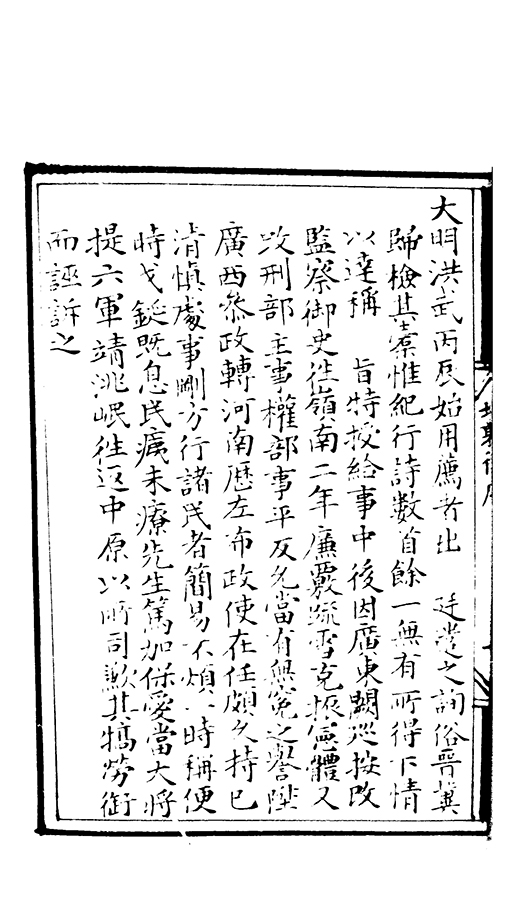 大明洪武丙辰始用薦者出　廷遣之詢俗晉冀
歸檢其槖惟紀行詩數首餘一無有所得下情
以達稱　旨特授給事中後因廣東闕巡按改
監察御史徃嶺南二年廉覈疏雪克振憲體又
改刑部主事權部事平反允當有無冤之譽陞
廣西叅政轉河南歴左布政使在任頗久持已
清慎處事剛方行諸民者簡易不煩一時稱便
時戈鋋既息民痍未療先生篤加保愛當大將
提六軍靖洮岷徃返中原以所司歉其犒勞銜
而誣訴之